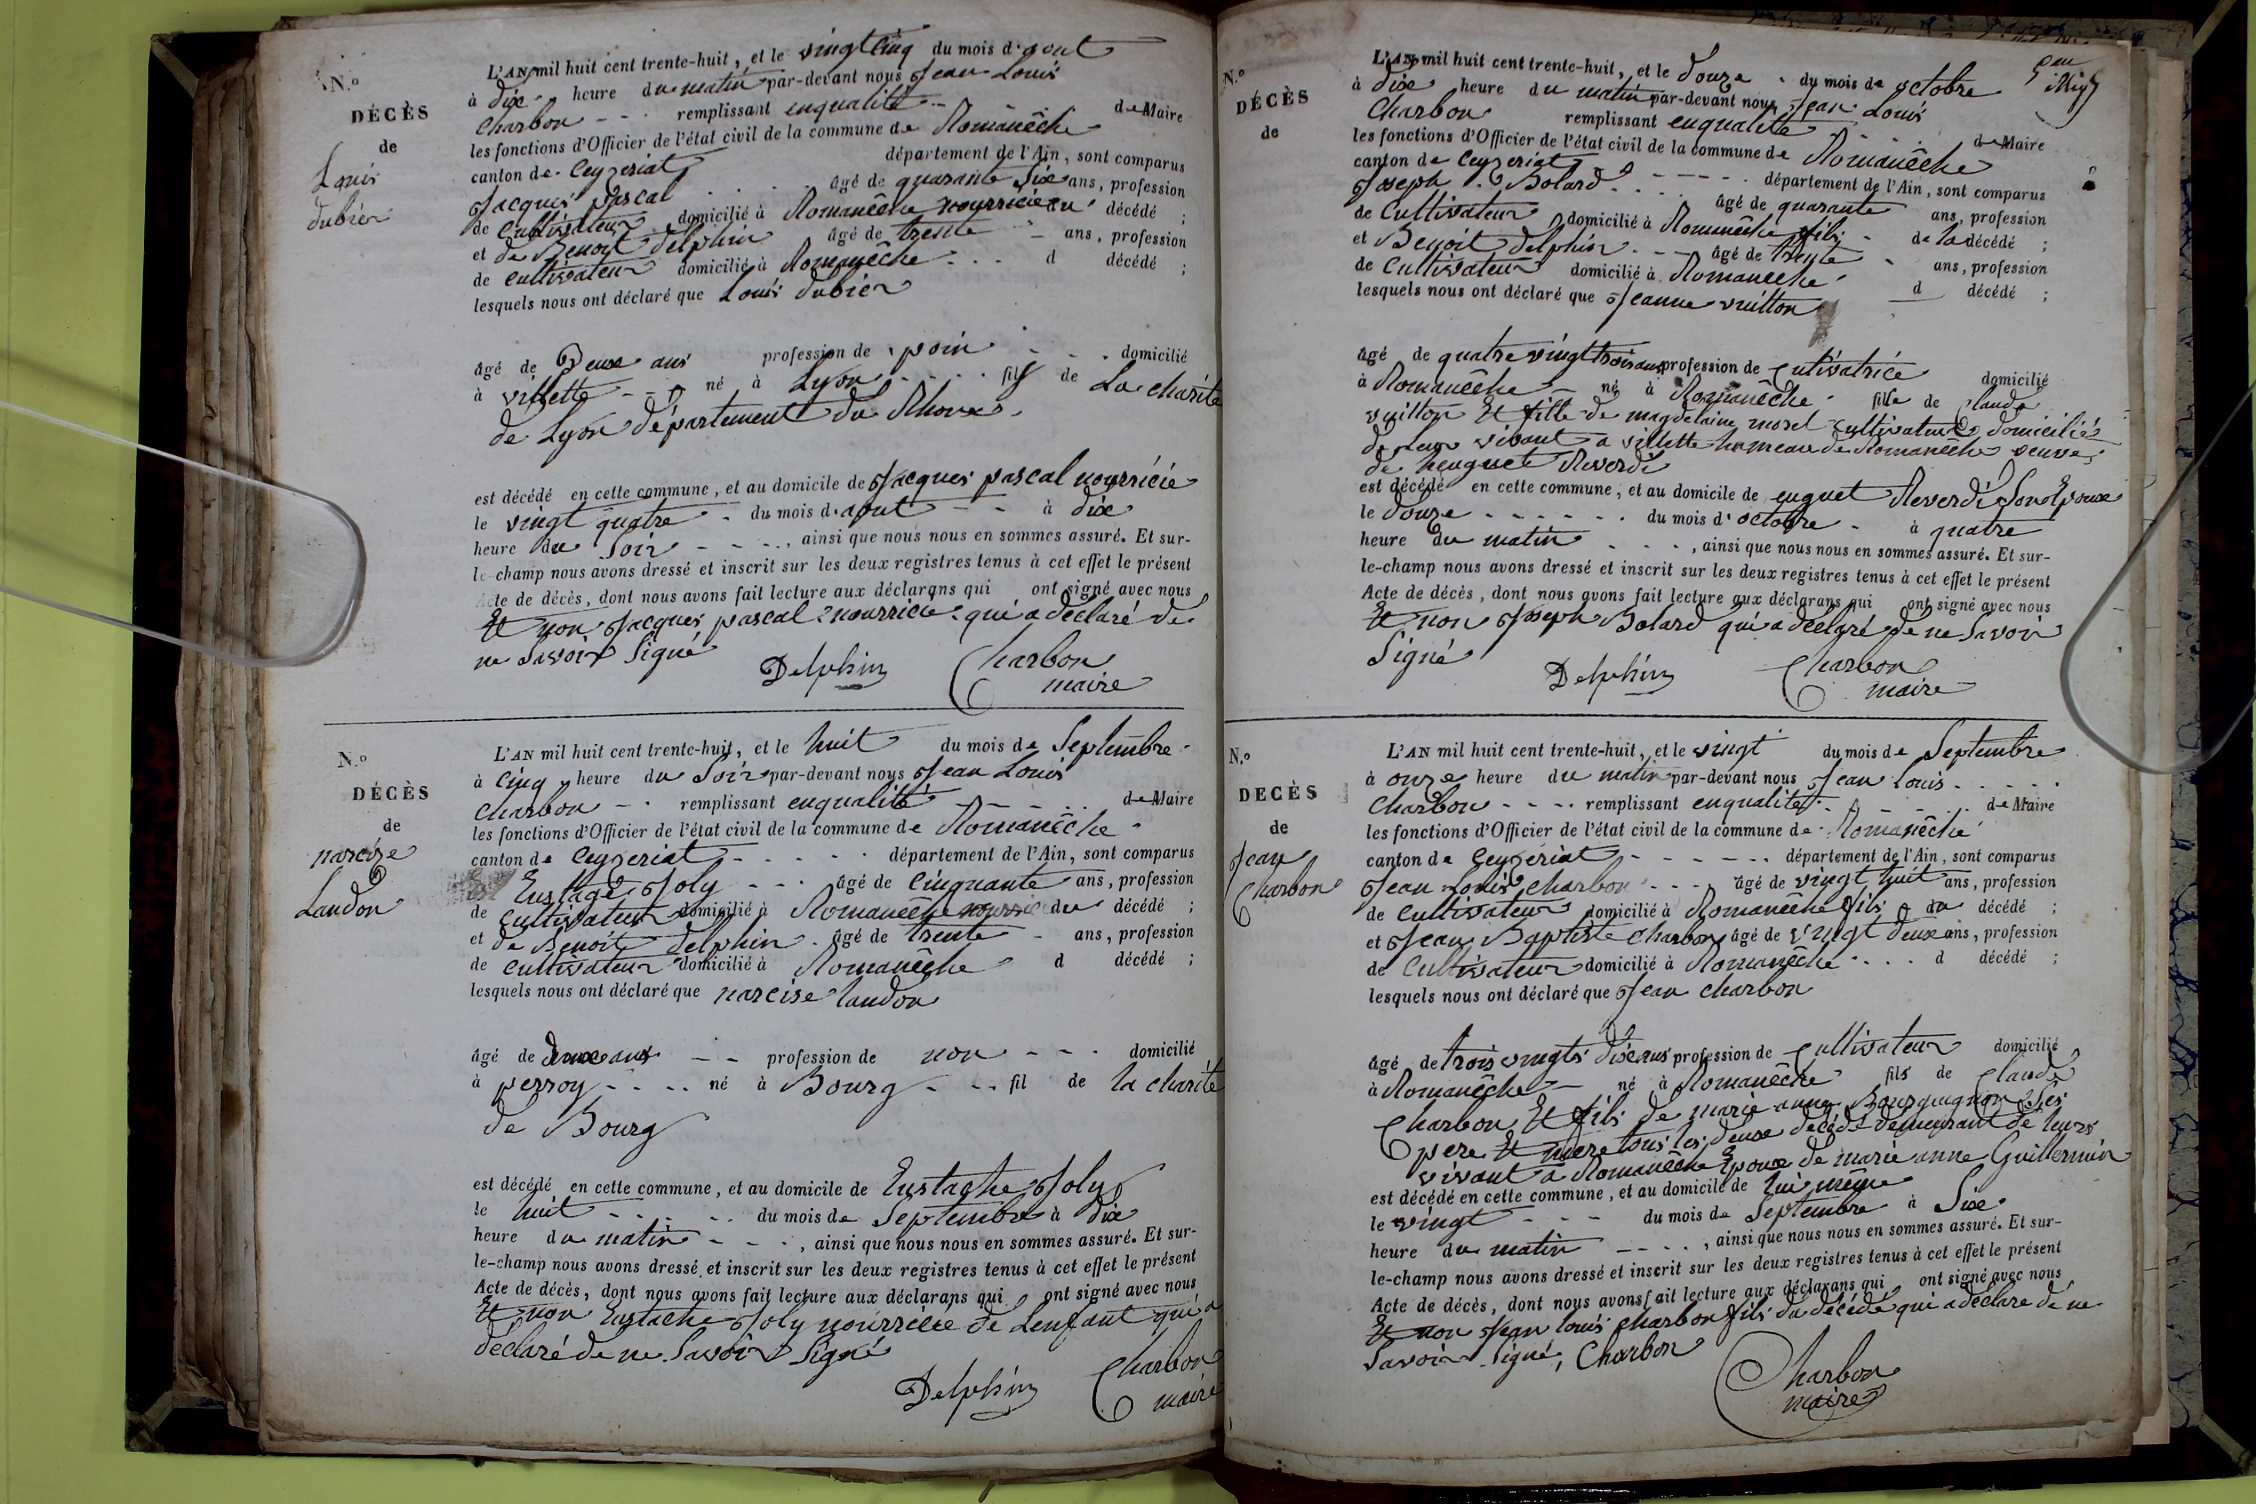 N.º
DÉCÈS
de
Louis
dubier
L'AN mil huit cent trente-huit, et le vingt cinq du mois d'aout
à dix heure du matin par-devant nous Jean Louis
Charbon remplissant enqualité de Maire
les fonctions d'Officier de l'état civil de la commune de Romanêche
canton de Ceyzeriat département de l'Ain, sont comparus
Jacques pascal âgé de quarante six ans, profession
de Cultivateur domicilié à Romanêche nourricier du décédé ;
et de Benoit delphin âgé de trente ans, profession
de cultivateur domicilié à Romanêche d décédé ;
lesquels nous ont déclaré que Louis dubier
âgé de Deux ans profession de poin domicilié
à villette né à Lyon fils de La charité
de Lyon département du Rhone
est décédé en cette commune, et au domicile de Jacques pascal nourricie
le vingt quatre du mois d'aout à dix
heure du soir, ainsi que nous nous en sommes assuré. Et sur-
le-champ nous avons dressé et inscrit sur les deux registres tenus à cet effet le présent
Acte de décès, dont nous avons fait lecture aux déclarans qui ont signé avec nous
Et non Jacques pascal nourricie qui a déclaré de
ne savoir signé
Delphin Charbon
maire
N.º
DÉCÈS
de
narcise
Landon
L'AN mil huit cent trente-huit, et le huit du mois de Septembre
à cinq heure du soir par-devant nous Jean Louis
Charbon remplissant enqualité de Maire
les fonctions d'Officier de l'état civil de la commune de Romanêche
canton de Ceyzeriat département de l'Ain, sont comparus
Eustage Joly âgé de cinquante ans, profession
de cultivateur domicilié à Romanêche du décédé ;
et de Benoit delphin âgé de trente ans, profession
de cultivateur domicilié à Romanêche d décédé ;
lesquels nous ont déclaré que narcise landon
âgé de deux ans profession de non domicilié
à perroy né à Bourg fil de la charité
de Bourg
est décédé en cette commune, et au domicile de Eustache Joly
le huit du mois de Septembre à dix
heure du matin, ainsi que nous nous en sommes assuré. Et sur-
le-champ nous avons dressé et inscrit sur les deux registres tenus à cet effet le présent
Acte de décès, dont nous avons fait lecture aux déclarans qui ont signé avec nous
Et non Eustache Joly nourricie de Lenfant qui a
déclaré de ne savoir signé
Delphin Charbon
maire
N.º
DÉCÈS
de
L'AN mil huit cent trente-huit, et le douze du mois de octobre
à dix heure du matin par-devant nous Jean Louis
Charbon remplissant enqualité de Maire
les fonctions d'Officier de l'état civil de la commune de Romanêche
canton de Ceyzeriat département de l'Ain, sont comparus
Joseph Bolard âgé de quarante ans, profession
de Cultivateur domicilié à Romanêche fils de la décédé ;
et Benoit delphin âgé de trente ans, profession
de Cultivateur domicilié à Romanêche d décédé ;
lesquels nous ont déclaré que Jeanne vuitton
âgé de quatre vingt trois ans profession de Cutivatrice domicilié
à Romanêche né à Romanêche fille de Claude
vuitton Et fille de magdelaine morel cultivateurs domiciliés
de Leur vivant a villette hameau de Romanêche veuve
de heuguet Reverdi
est décédé en cette commune, et au domicile de euguet Reverdi son Epoux
le douze du mois d'octobre à quatre
heure du matin, ainsi que nous nous en sommes assuré. Et sur-
le-champ nous avons dressé et inscrit sur les deux registres tenus à cet effet le présent
Acte de décès, dont nous avons fait lecture aux déclarans qui ont signé avec nous
Et non Joseph Bolard qui a déclaré de ne savoir
signé
Delphin Charbon
maire
N.º
DÉCÈS
de
Jean
Charbon
L'AN mil huit cent trente-huit, et le vingt du mois de Septembre
à onze heure du matin par-devant nous Jean Louis
Charbon remplissant enqualité de Maire
les fonctions d'Officier de l'état civil de la commune de Romanêche
canton de Ceyzeriat département de l'Ain, sont comparus
Jean Louis Charbon âgé de vingt huit ans, profession
de Cultivateur domicilié à Romanêche fils du décédé ;
et Jean Baptiste Charbon âgé de vingt deux ans, profession
de Cultivateur domicilié à Romanêche d décédé ;
lesquels nous ont déclaré que Jean charbon
âgé de trois vingts dix ans profession de Cultivateur domicilié
à Romanêche né à Romanêche fils de Claude
Charbon Et fils de marie anne Bourguignon Ses
pere Et mere tous les deux décédé demeurant de leurs
vivant a Romanêche Epoux de marie anne Guillermin
est décédé en cette commune, et au domicile de lui même
le vingt du mois de Septembre à Six
heure du matin, ainsi que nous nous en sommes assuré. Et sur-
le-champ nous avons dressé et inscrit sur les deux registres tenus à cet effet le présent
Acte de décès, dont nous avons fait lecture aux déclarans qui ont signé avec nous
Et non Jean louis charbon fils du décédé qui a déclaré de ne
Savoir signé, Charbon
Charbon
maire